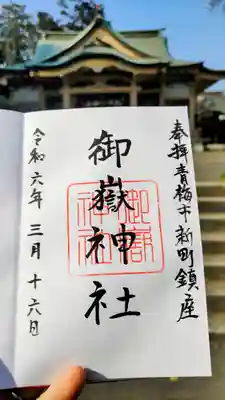 奉拝青梅市新町鎮座
御嶽神社
御嶽神社
令和六年三月十六日